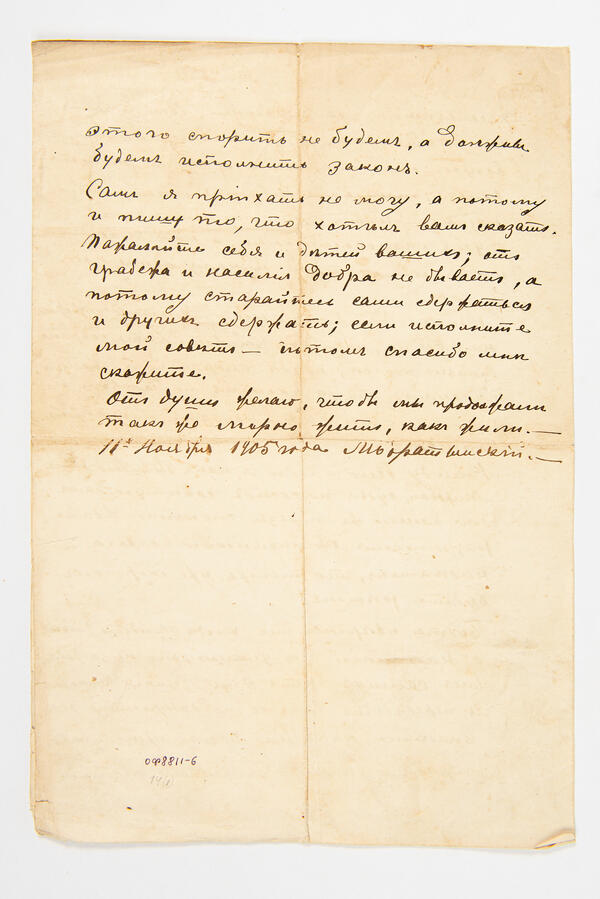 этого спорить не будемъ, а должны
будемъ исполнить законъ.
Самъ я пріѣхать не могу, а потому
и пишу то, что хотѣлъ вамъ сказать.
Пожалѣйте себя и дѣтей вашихъ; отъ
грабежа и насилія добра не бываетъ, а
потому старайтесь сами сдержаться
и другихъ сдержать; если исполните
мой совѣтъ — потомъ спасибо мнѣ
скажите.
Отъ души желаю, чтобы мы продолжали
такъ же мирно жить, какъ жили. —
11го Ноября 1905 года
ОФ8811-6